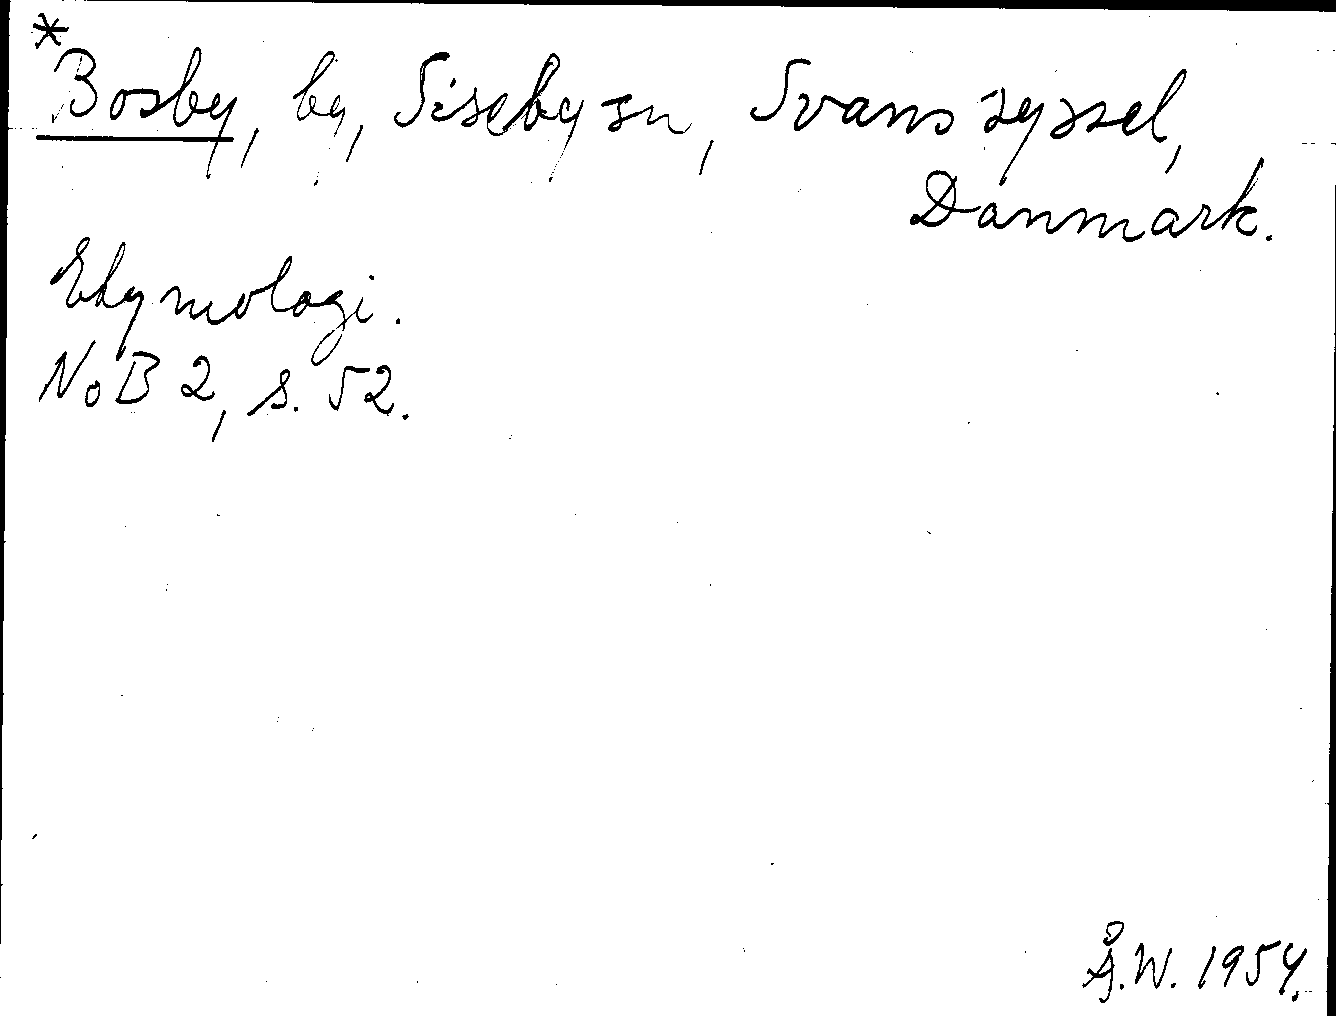 *Bosby, by, Siseby sn, Svans syssel,
Danmark.
Etymologi.
NoB 2, s. 52.
Å.W. 1954.